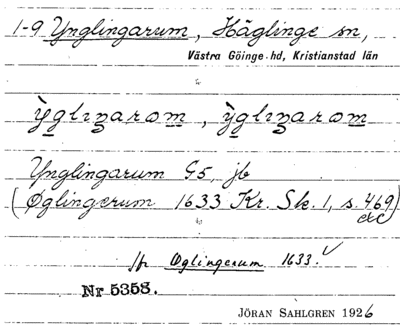 1-9 Ynglingarum, Häglinge sn,
Västra Göinge hd, Kristianstad län
Ynglingarum G5, jb
(Øglingerum 1633 Kr. Sk. 1, s. 469)
etc
jfr Øglingerum 1633.
Nr 5358.
JÖRAN SAHLGREN 1926